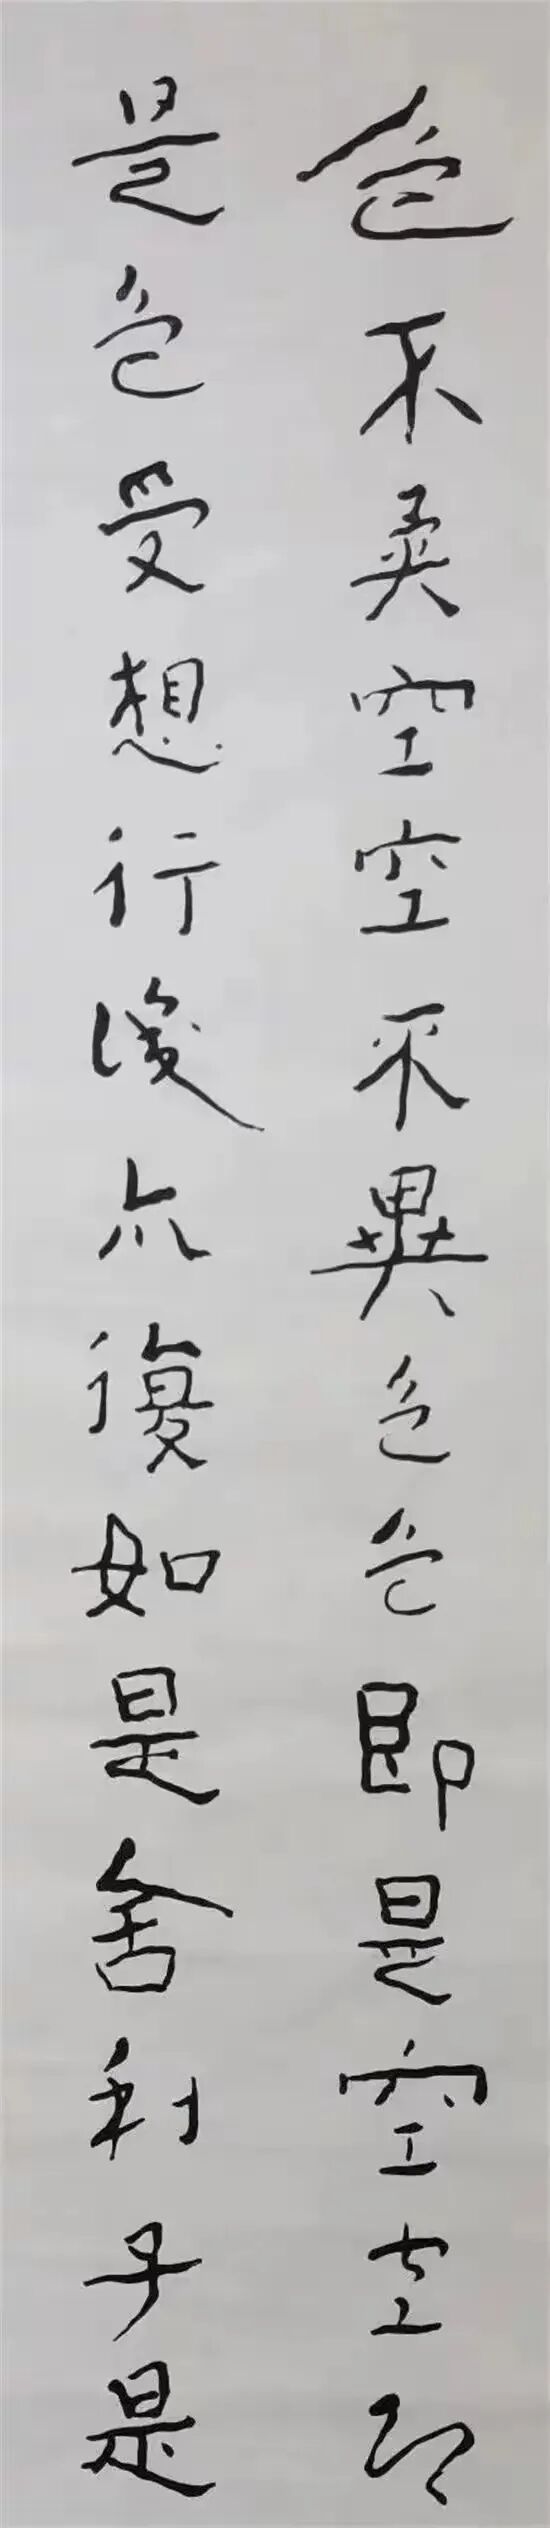 色不異空空不異色色即是空空即
是色受想行識亦復如是舍利子是